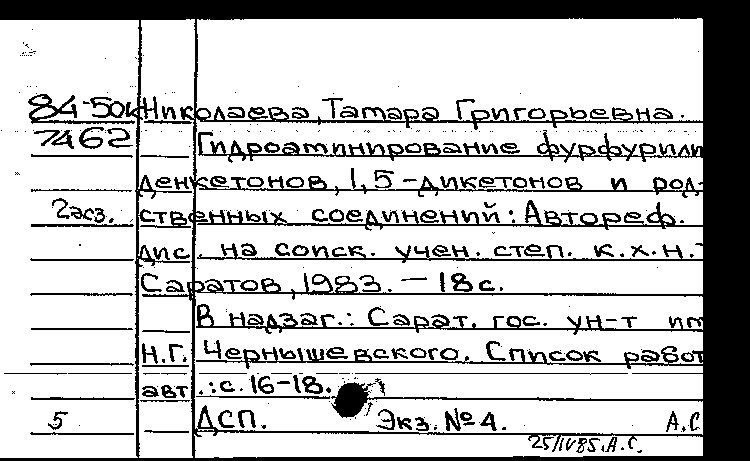 84-50к Николаева, Тамара Григорьевна.
7462 Гидроаминирование фурфурили
денкетонов, 1,5-дикетонов и род-
2экз. ственных соединений: Автореф.
дис. на соиск. учен. степ. к.х.н.-
Саратов, 1983. — 18с.
В надзаг.: Сарат. гос. ун-т им
Н.Г. Чернышевского. Список работ
авт.: с. 16-18.
5 ДСП. Экз. №4. А.С
25/IV85. А.С.